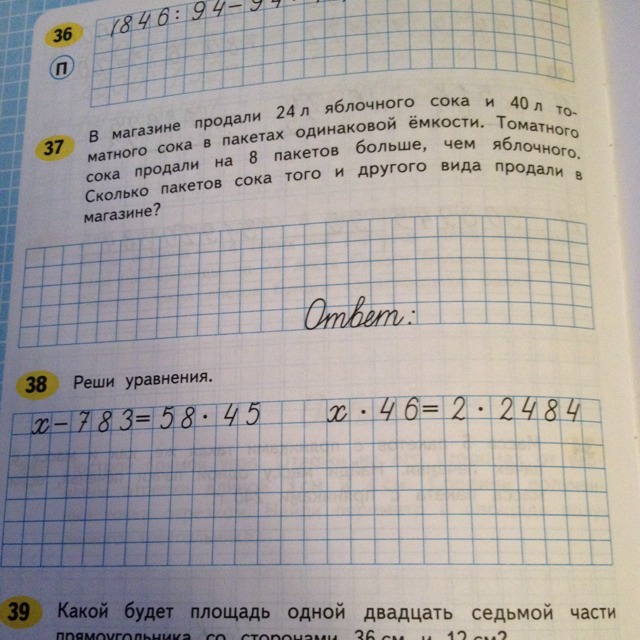 36
1846:94-94
П
37
В магазине продали 24 л яблочного сока и 40 л то-
матного сока в пакетах одинаковой ёмкости. Томатного
сока продали на 8 пакетов больше, чем яблочного.
Сколько пакетов сока того и другого вида продали в
магазине?
Ответ:
38 Реши уравнения.
x-783=58·45 x·46=2·2484
39 Какой будет площадь одной двадцать седьмой части
прямоугольника со сторонами 36 см и 12 см?